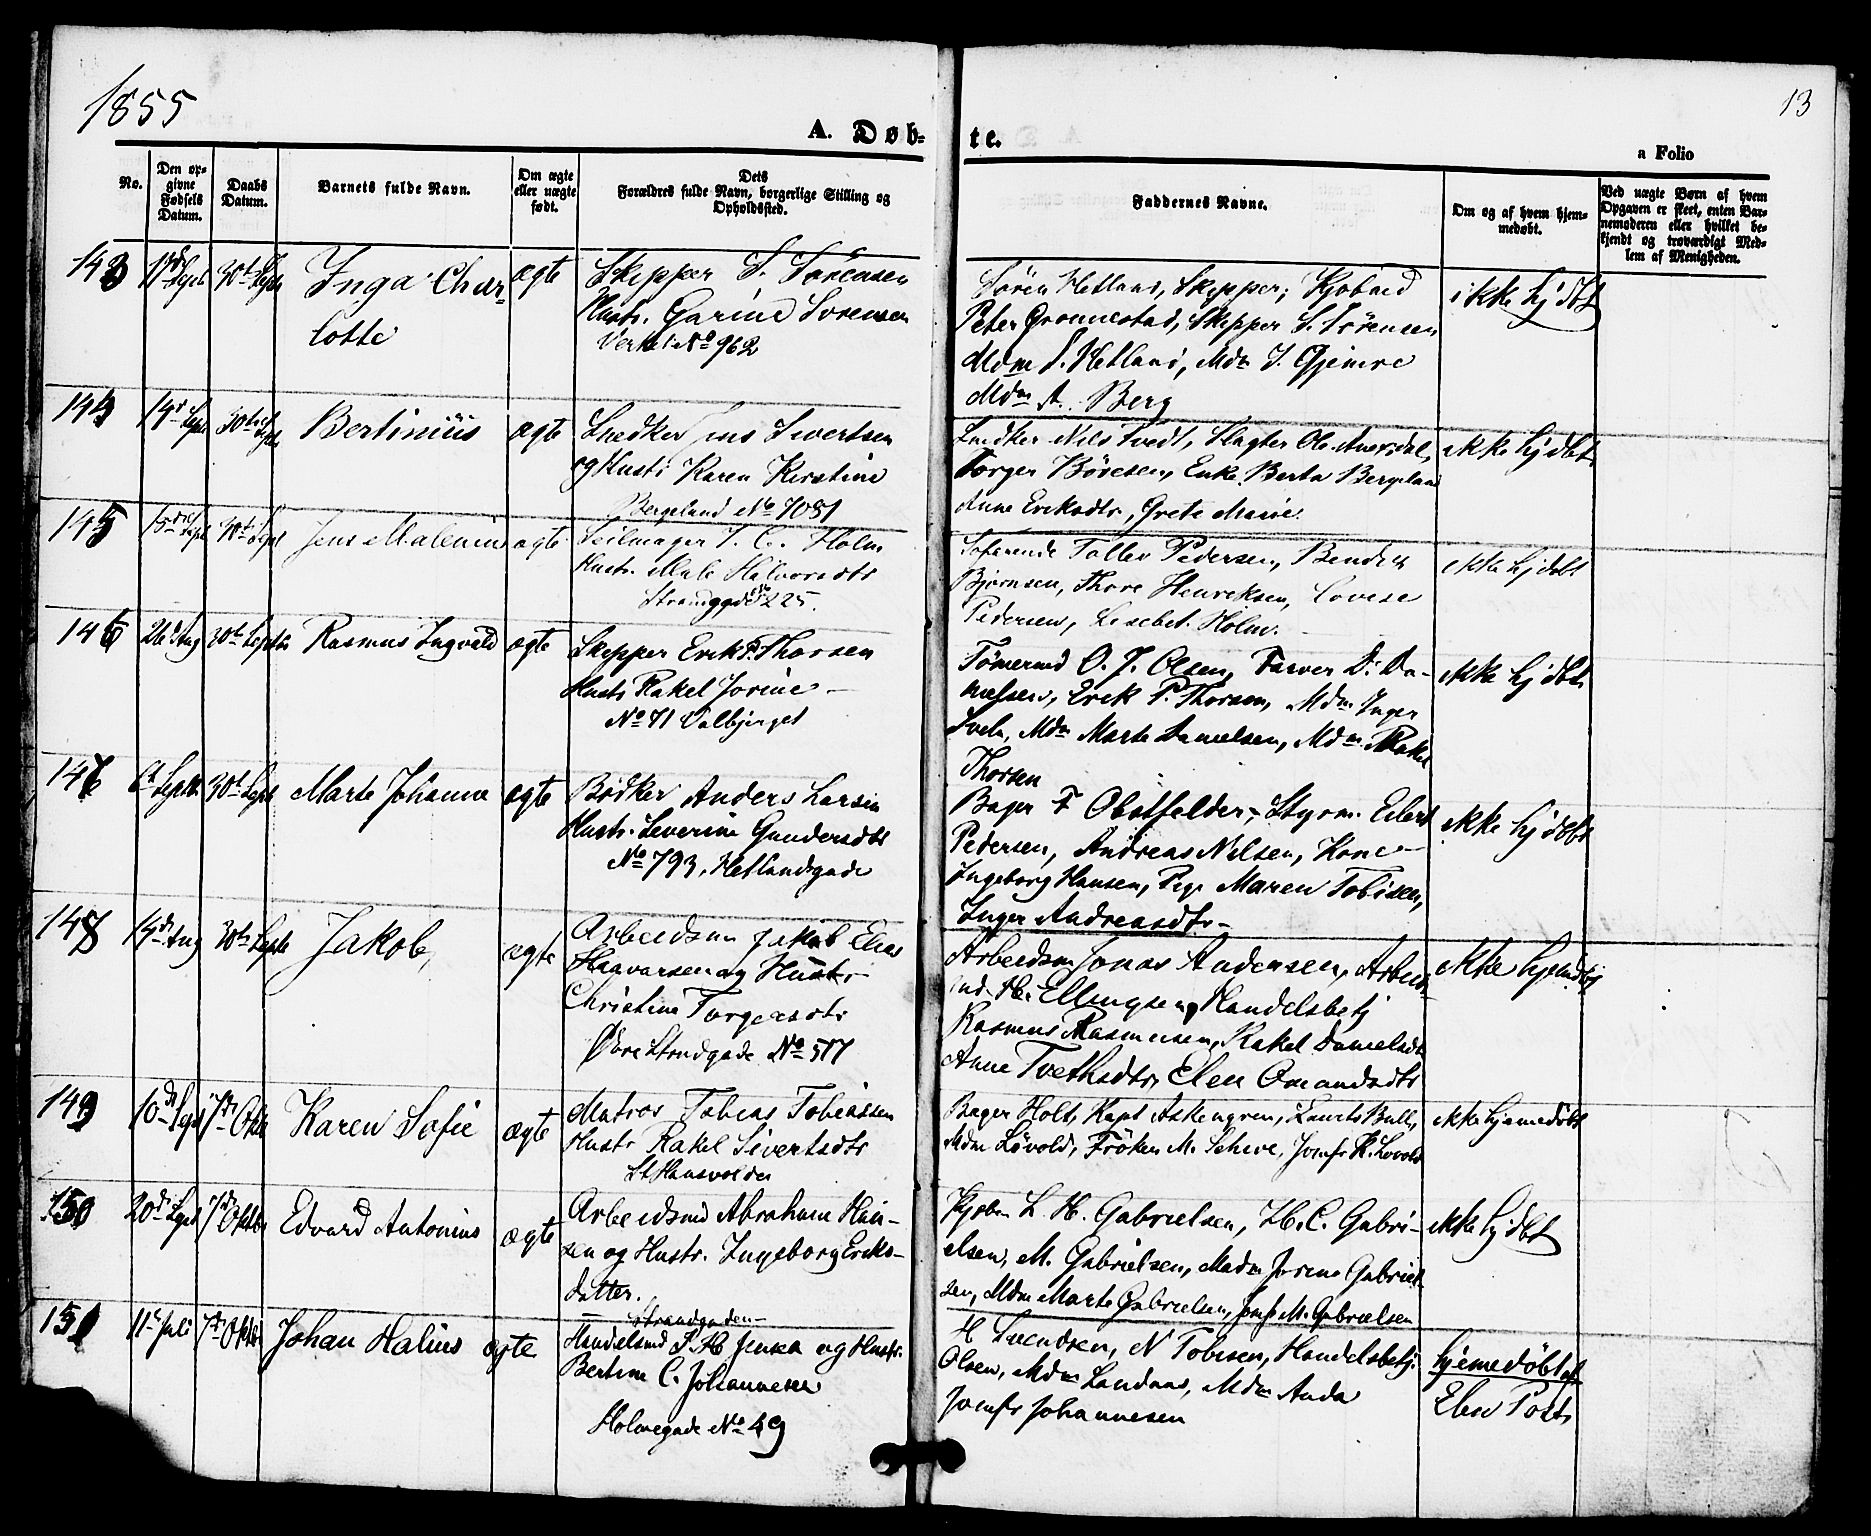 1855
13
A. Døb-
te.
a Folio
No.
Den op-
givne
Fødsels
Datum.
Daabs
Datum.
Barnets fulde Navn.
Om ægte
eller uægte
født.
Dets
Forældres fulde Navn, borgerlige Stilling og
Opholdssted.
Faddernes Navne.
Om og af hvem hjem-
medøbt.
Ved uægte Børn af hvem
Opgaven er skeet, enten Bar-
nemoderen eller hvilket be-
kjendt og troværdigt Med-
lem af Menigheden.
143
30te Sept
Inga Char-
lotte
ægte
Skipper S. Sørensen
Hustr. Garine Sørensen
Verket No 962
Sören Hetland, Skipper,
Peter Gronnestad, Skipper S. Sörensen
Mdm S. Hetland, Mdm J. Gjemre
Mdm A. Berg
ikke hjdbt
144
14d Sept
30te Sept
Bertinius
ægte
Snedker Jens Sivertsen
og Hustr Karen Kirstine
Bergeland No 7081
Snedker Nils Tvedt, Slagter Ole
Torger Böresen, Enke Berta Bergeland
Anne Eriksdtr, Grete Marie.
ikke hjdbt
145
15de Sept
30te Sept
Jens Malenius
ægte
Seilmager T. C. Holm
Hustr. Male Halvorsdtr
Strandgade No 225.
Söfarende Tollev Pedersen, Bendik
Bjørnsen, Thore Henriksen, Lovise
Pedersen, Lisebet Holm.
ikke hjdøbt
146
26d Aug
30te Sept
Rasmus Ingvald
ægte
Skipper Erik P. Thorsen
Hustr Rakel Jorine -
No 71 Valbjerget
Tömermd O. J. Olsen, Farver D. Da-
nielsen, Erik P. Thorsen, Mdm Inger
Svele, Mdm Marte Danielsen, Mdm Rakel
Thorsen
ikke hjdbt
147
6t Sept
30te Sept
Marte Johanne
ægte
Bödker Anders Larsen
Hustr. Severine Gundersdtr
No 793, Hetlandsgade
Bager F Obstfelder, Styrm. Eilert
Pedersen, Andreas Nilsen, Kone
Ingeborg Hansen, Pige Maren Tobisen,
Inger Andreasdtr -
ikke hjdøbt
148
14de Aug
30te Septe
Jakob,
ægte
Arbeidsm Jakob Elias
Haavarsen og Hustr
Christine Torgersdtr
Øvre Strndgade No 517
Arbeidsm Jonas Andersen, Arbeids-
md. H. Ellingsen, Handelsbetj
Rasmus Rasmussen, Rakel Danielsdtr
Anne Tvethsdtr, Elen Omundsdtr
ikke hjemdbt
149
10de Sept
7de Oktbr
Karen Sofie
ægte
Matros Tobias Tobiassen
Hustr Rakel Sivertsdtr
St Hansvolden
Bager Holt, Kapt Askengren, Laurits Bull,
Mdm Lövold, Fröken M. Scheve, Jomfr K. Lövold
ikke hjemedøbt
150
20de Sept
7de Oktbr
Edvard Antonius
ægte
Arbeidsmd Abraham Han-
sen og Hustr. Ingeborg Eriks-
datter.
Strandgaden
Kjøbm L. H. Gabrielsen, H. C. Gabri-
elsen, M. Gabrielsen, Madm Jorine Gabriel-
sen, Mdm Marte Gabrielsen, Jomf M. Gabrielsen
ikke hjdbt
151
11te Juli
7de Oktbr
Johan Halius
ægte
Handelsmd P. H. Jensen og Hustr.
Bertine C. Johannesen
Holmegade No 49
H Svendsen, N Tobisen, Handelsbetj.
Olsen, Mdm Landaas, Mdm Anda
Jomfr Johannesen
hjemedöbt af
Elen Posts